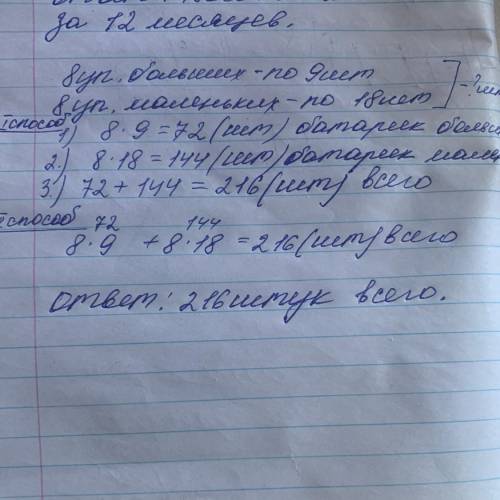 за 12 месяцев.
8 уп. больших - по 9 шт
8 уп. маленьких - по 18 шт ] - ?
I способ
1) 8 · 9 = 72 (шт) батареек
2.) 8 · 18 = 144 (шт) батареек
3.) 72 + 144 = 216 (шт) всего
способ
72 144
8 · 9 + 8 · 18 = 216 (шт) всего
ответ: 216 штук всего.